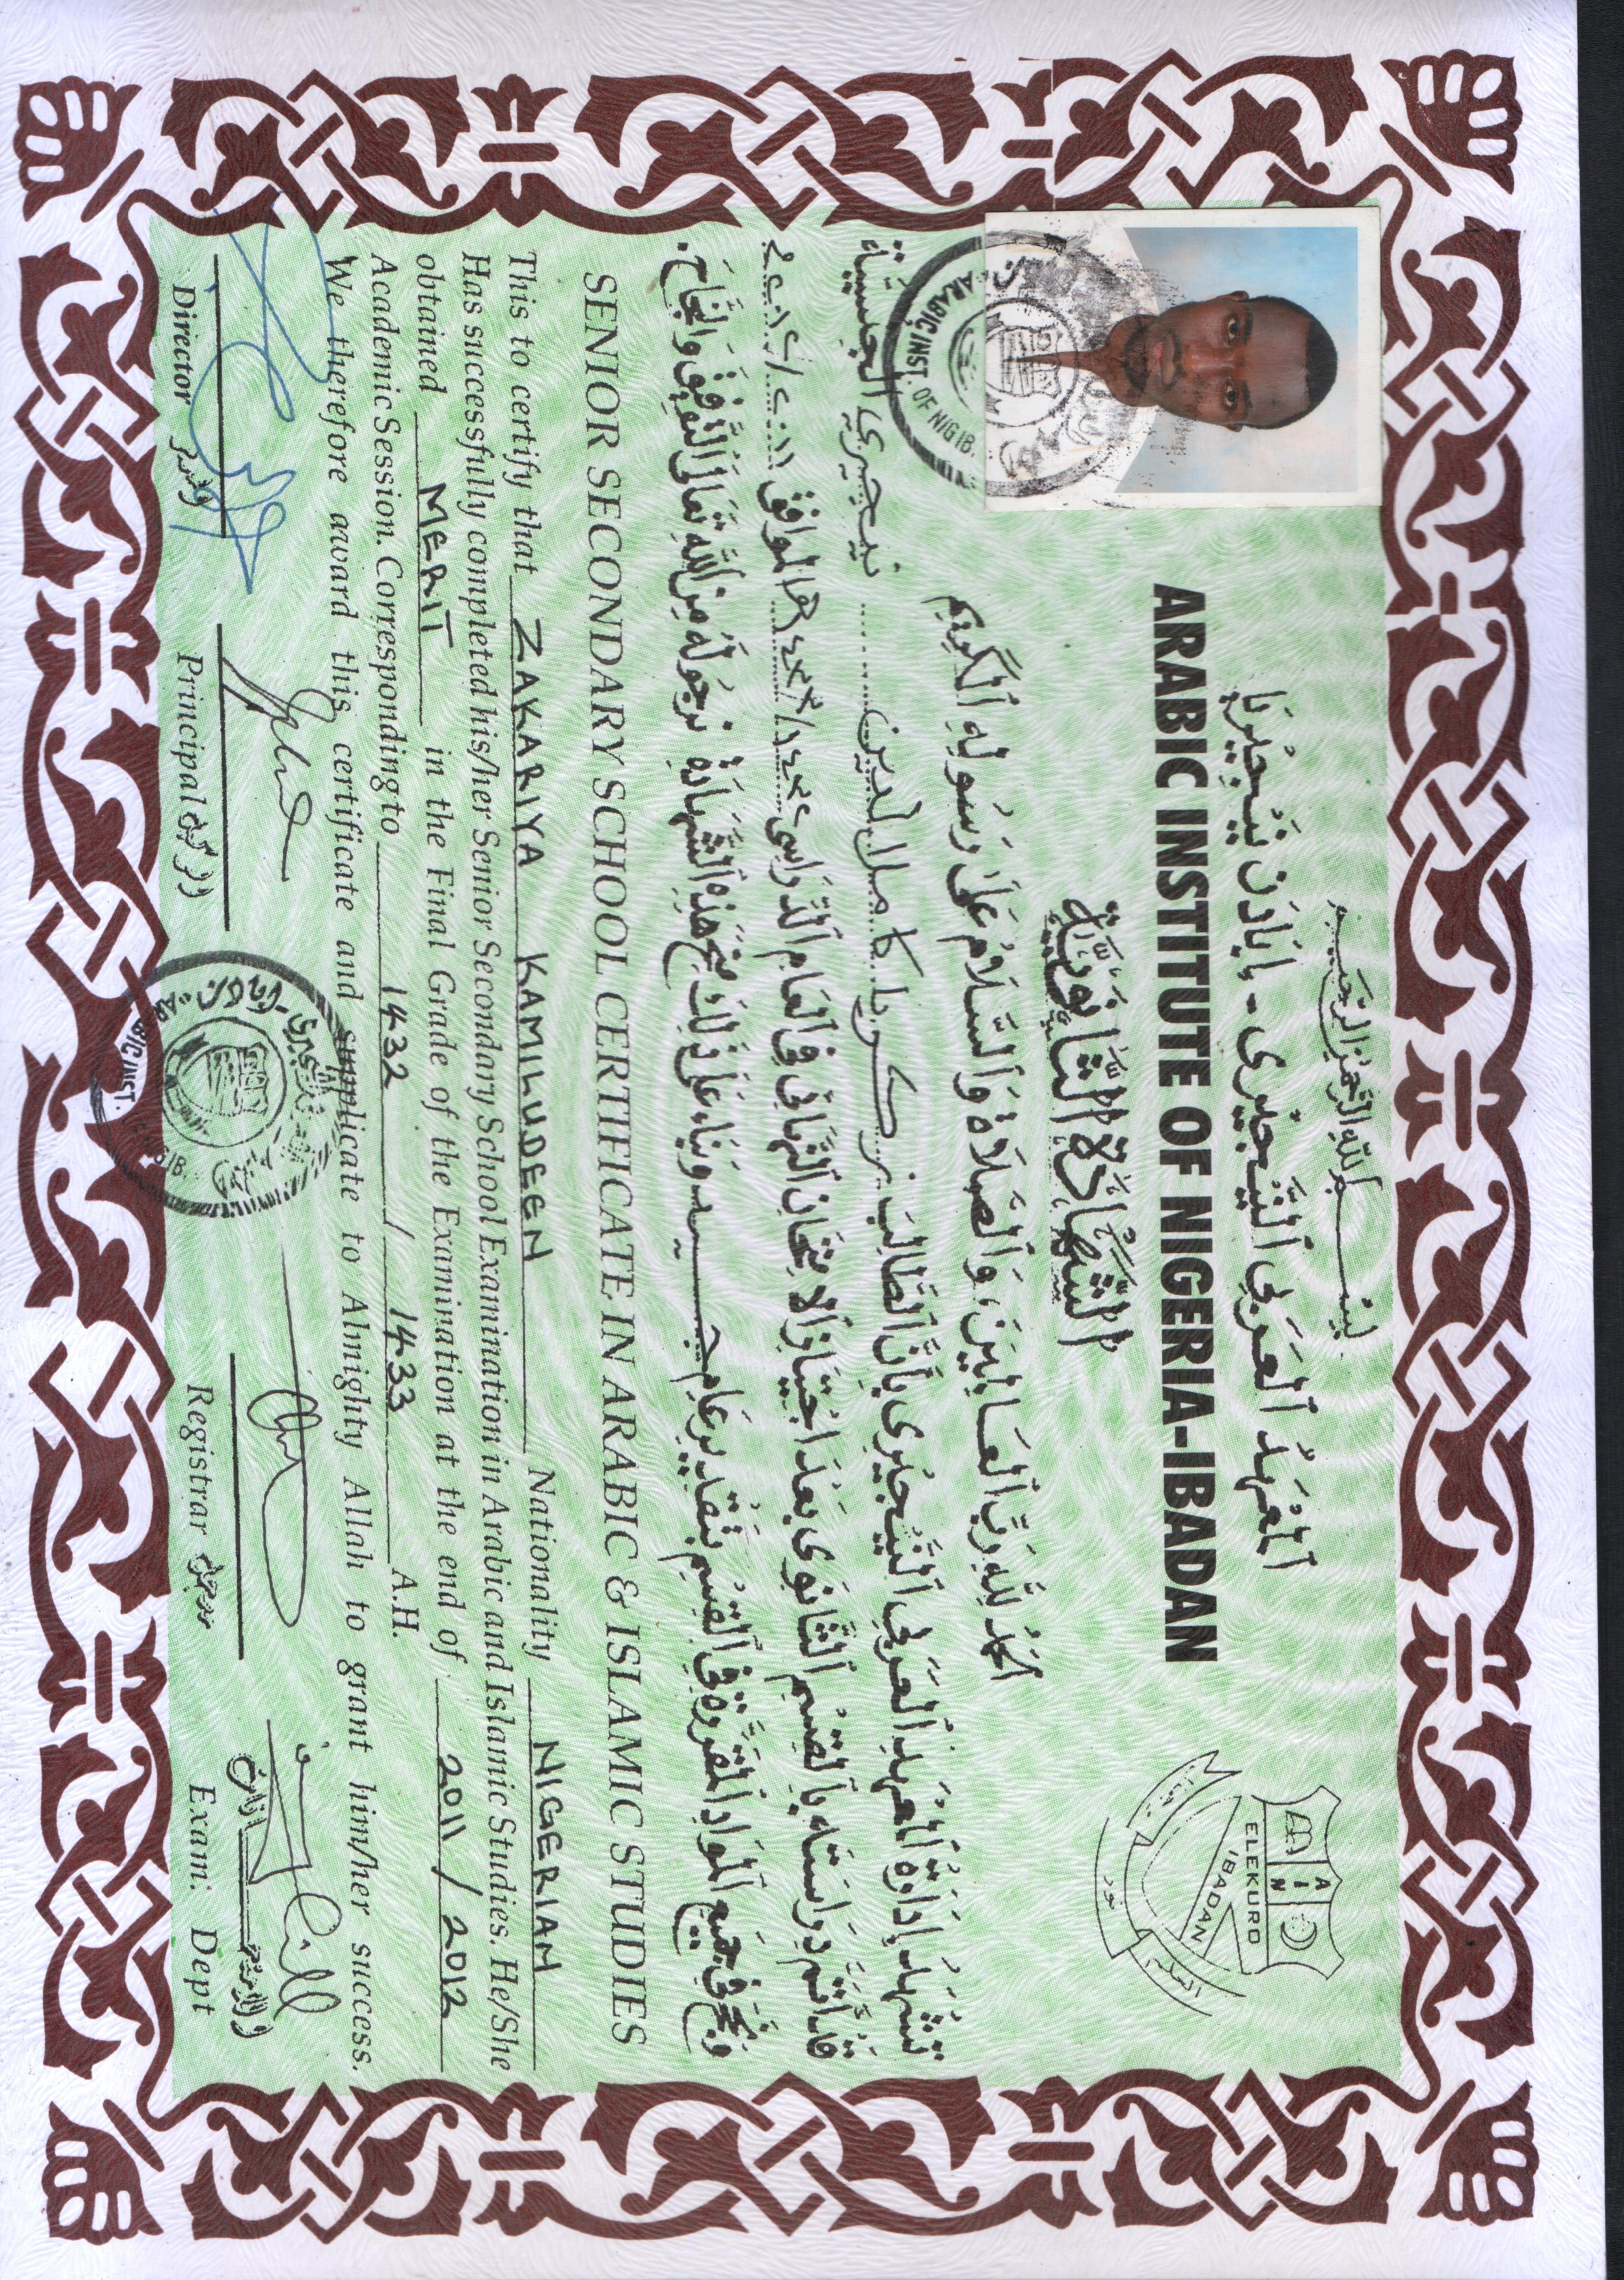 بِسْمِ اللَّهِ الرَّحْمٰنِ الرَّحِيمِ
اَلْمَعْهَدُ الْعَرَبِيُّ النَّيْجِيرِيُّ - إِبَادَن نَيْجِيرِيَا
ARABIC INSTITUTE OF NIGERIA-IBADAN
A I N
ELEKURO
IBADAN
الشَّهَادَةُ الثَّانَوِيَّةُ
الْحَمْدُ لِلَّهِ رَبِّ الْعَالَمِينَ، وَالصَّلَاةُ وَالسَّلَامُ عَلَى رَسُولِهِ الْكَرِيمِ
تَشْهَدُ إِدَارَةُ الْمَعْهَدِ الْعَرَبِيِّ النَّيْجِيرِيِّ بِأَنَّ الطَّالِبَ زكريا كامل الدين نيجيري الجنسية
قَدْ أَتَمَّ دِرَاسَتَهُ بِالْقِسْمِ الثَّانَوِيِّ بَعْدَ اجْتِيَازِ الْامْتِحَانِ النِّهَائِيِّ فِي الْعَامِ الدِّرَاسِيِّ ١٤٣٢/١٤٣٣هـ الموافق ٢٠١١/٢٠١٢م
وَنَجَحَ فِي جَمِيعِ الْمَوَادِ الْمُقَرَّرَةِ فِي الْقِسْمِ بِتَقْدِيرٍ عَامٍ جـــيـد وَبِنَاءً عَلَى ذَلِكَ مُنِحَ هَذِهِ الشَّهَادَةَ نَرْجُو لَهُ مِنَ اللَّهِ تَعَالَى التَّوْفِيقَ وَالنَّجَاحَ.
SENIOR SECONDARY SCHOOL CERTIFICATE IN ARABIC & ISLAMIC STUDIES
This to certify that ZAKARIYA KAMILUDEEN Nationality NIGERIAN
Has successfully completed his/her Senior Secondary School Examination in Arabic and Islamic Studies. He/She
obtained MERIT in the Final Grade of the Examination at the end of 2011 / 2012
Academic Session. Corresponding to 1432 / 1433 A.H.
We therefore award this certificate and supplicate to Almighty Allah to grant him/her success.
Director
Principal
Registrar
Exam: Dept
ARABIC INST. OF NIG IB.